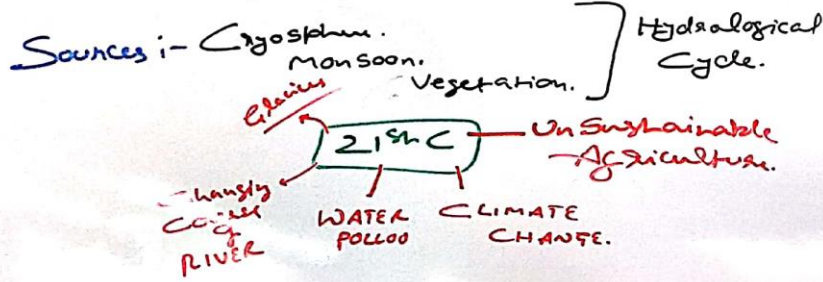 Sources :- Cryosphere.
Monsoon.
Vegetation.
Hydrological
Cycle.
Glaciers
21st C
UnSustainable
Agriculture.
Changing
Course
of
RIVER
WATER
POLLOO
CLIMATE
CHANGE.